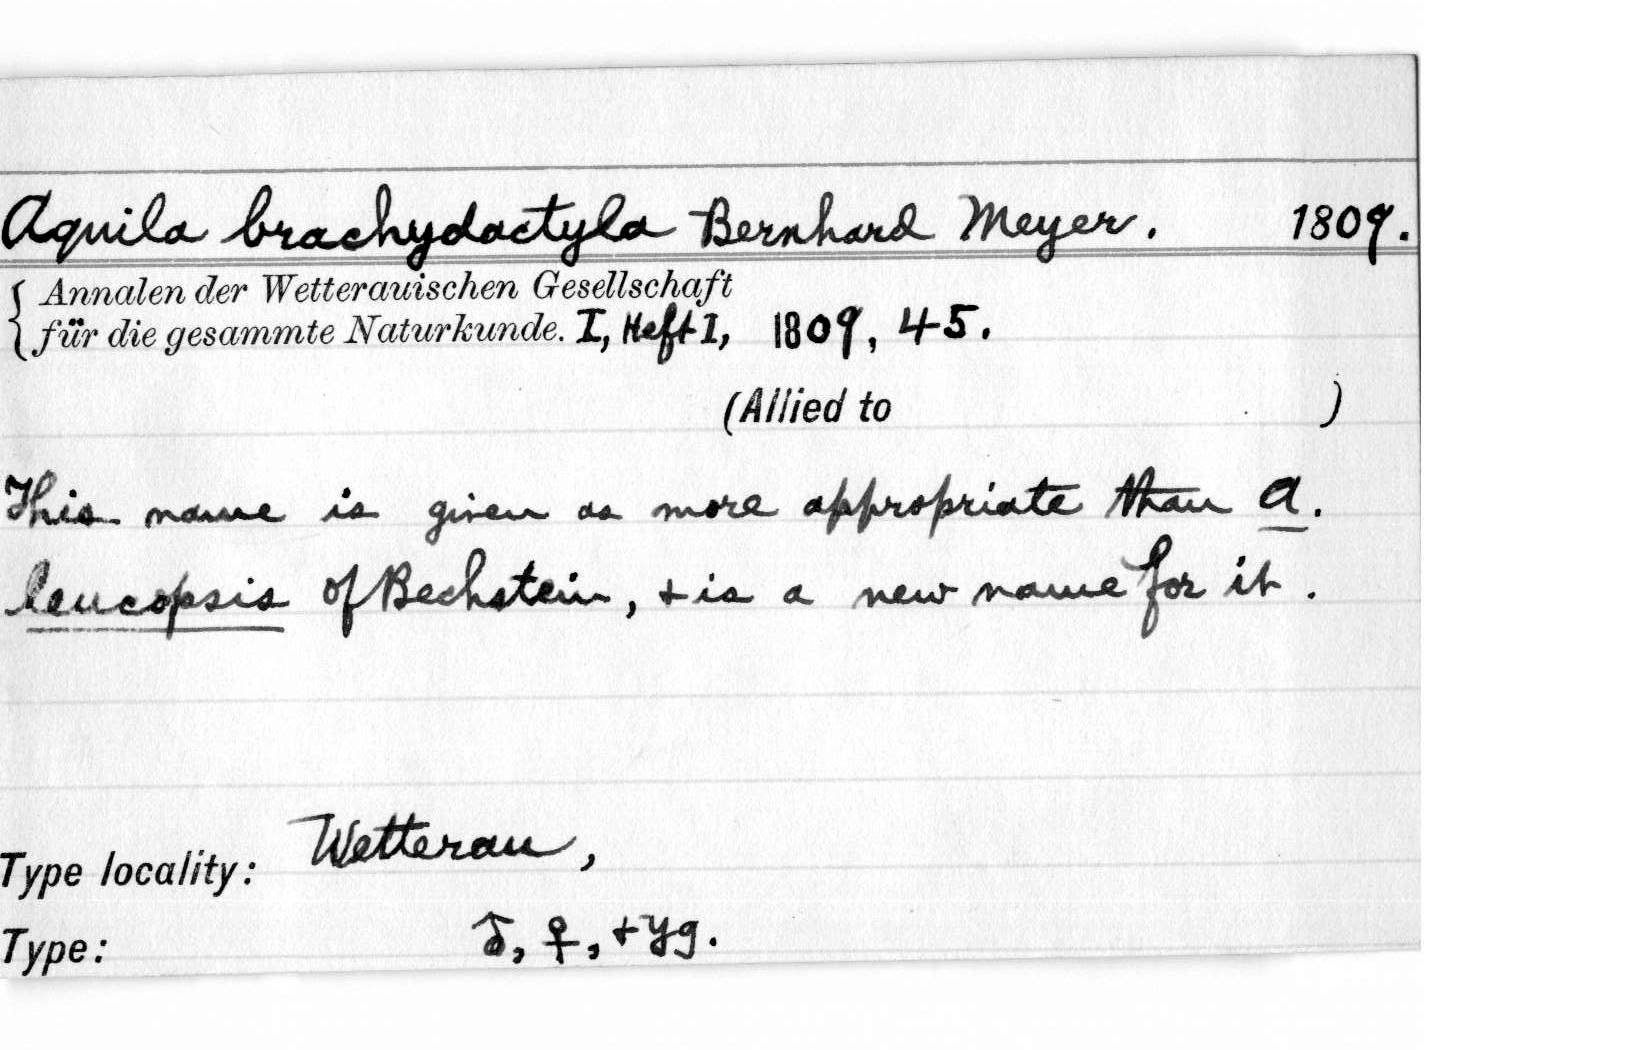 Aquila brachydactyla Bernhard Meyer. 1809.
{ Annalen der Wetterauischen Gesellschaft
für die gesammte Naturkunde. I, Heft I, 1809, 45.
(Allied to )
This name is given as more appropriate than A.
leucopsis of Bechstein, + is a new name for it.
Type locality: Wetterau,
Type: ♂, ♀, + yg.